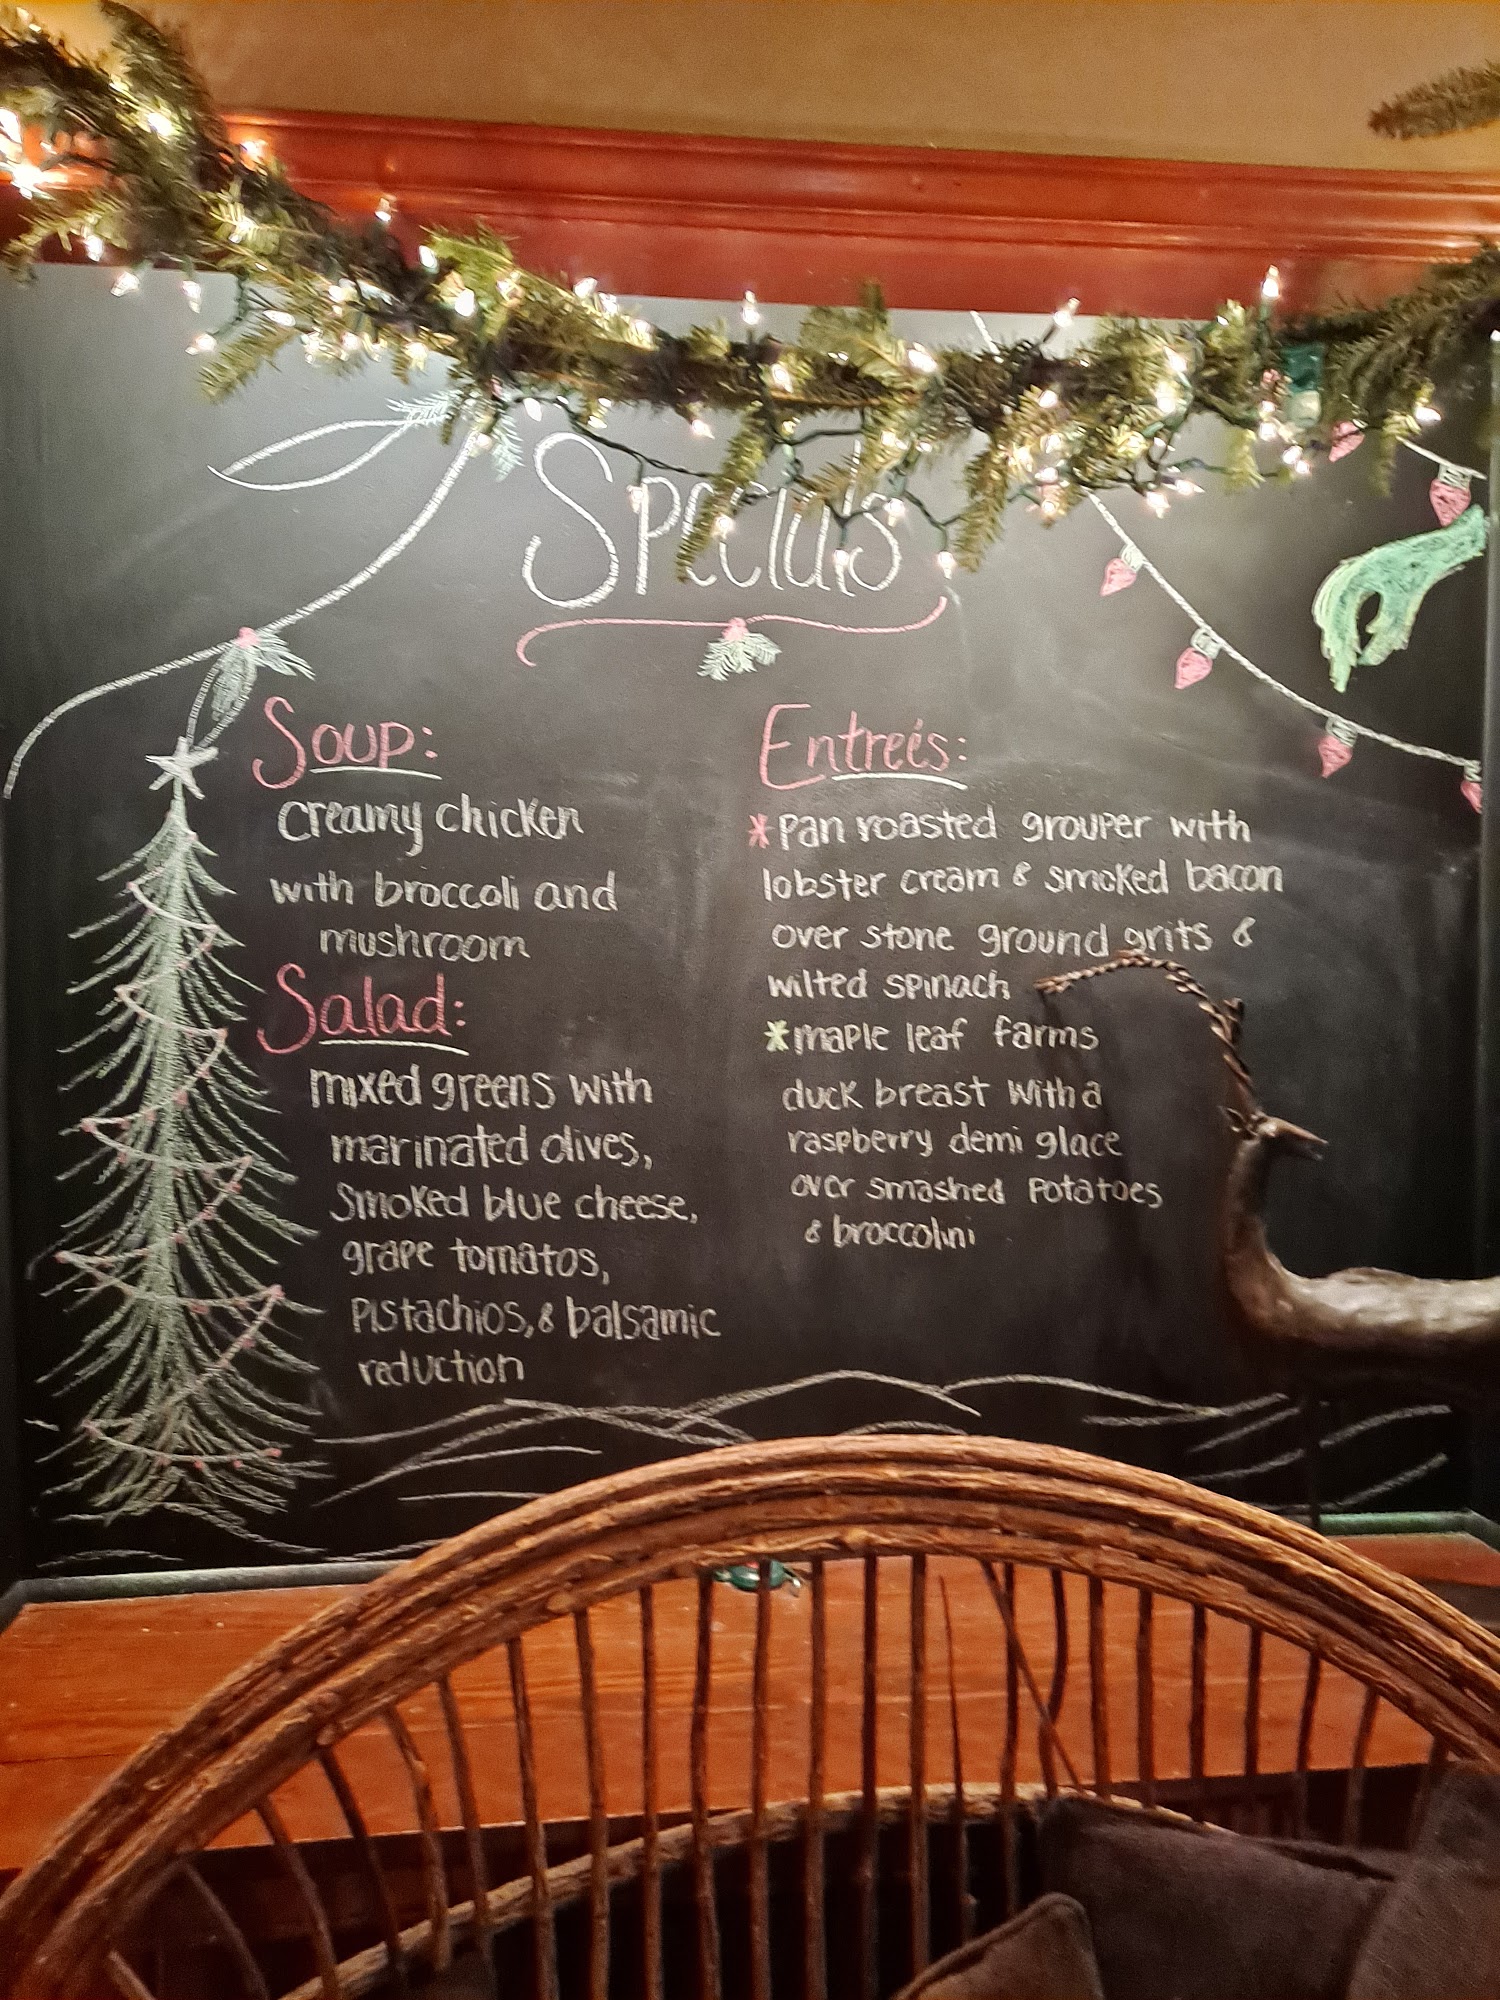 Specials
Soup:
creamy chicken
with broccoli and
mushroom
Salad:
mixed greens with
marinated olives,
smoked blue cheese,
grape tomatos,
pistachios, & balsamic
reduction
Entreés:
*pan roasted grouper with
lobster cream & smoked bacon
over stone ground grits &
wilted spinach
*maple leaf farms
duck breast with a
raspberry demi glace
over smashed potatoes
& broccolini